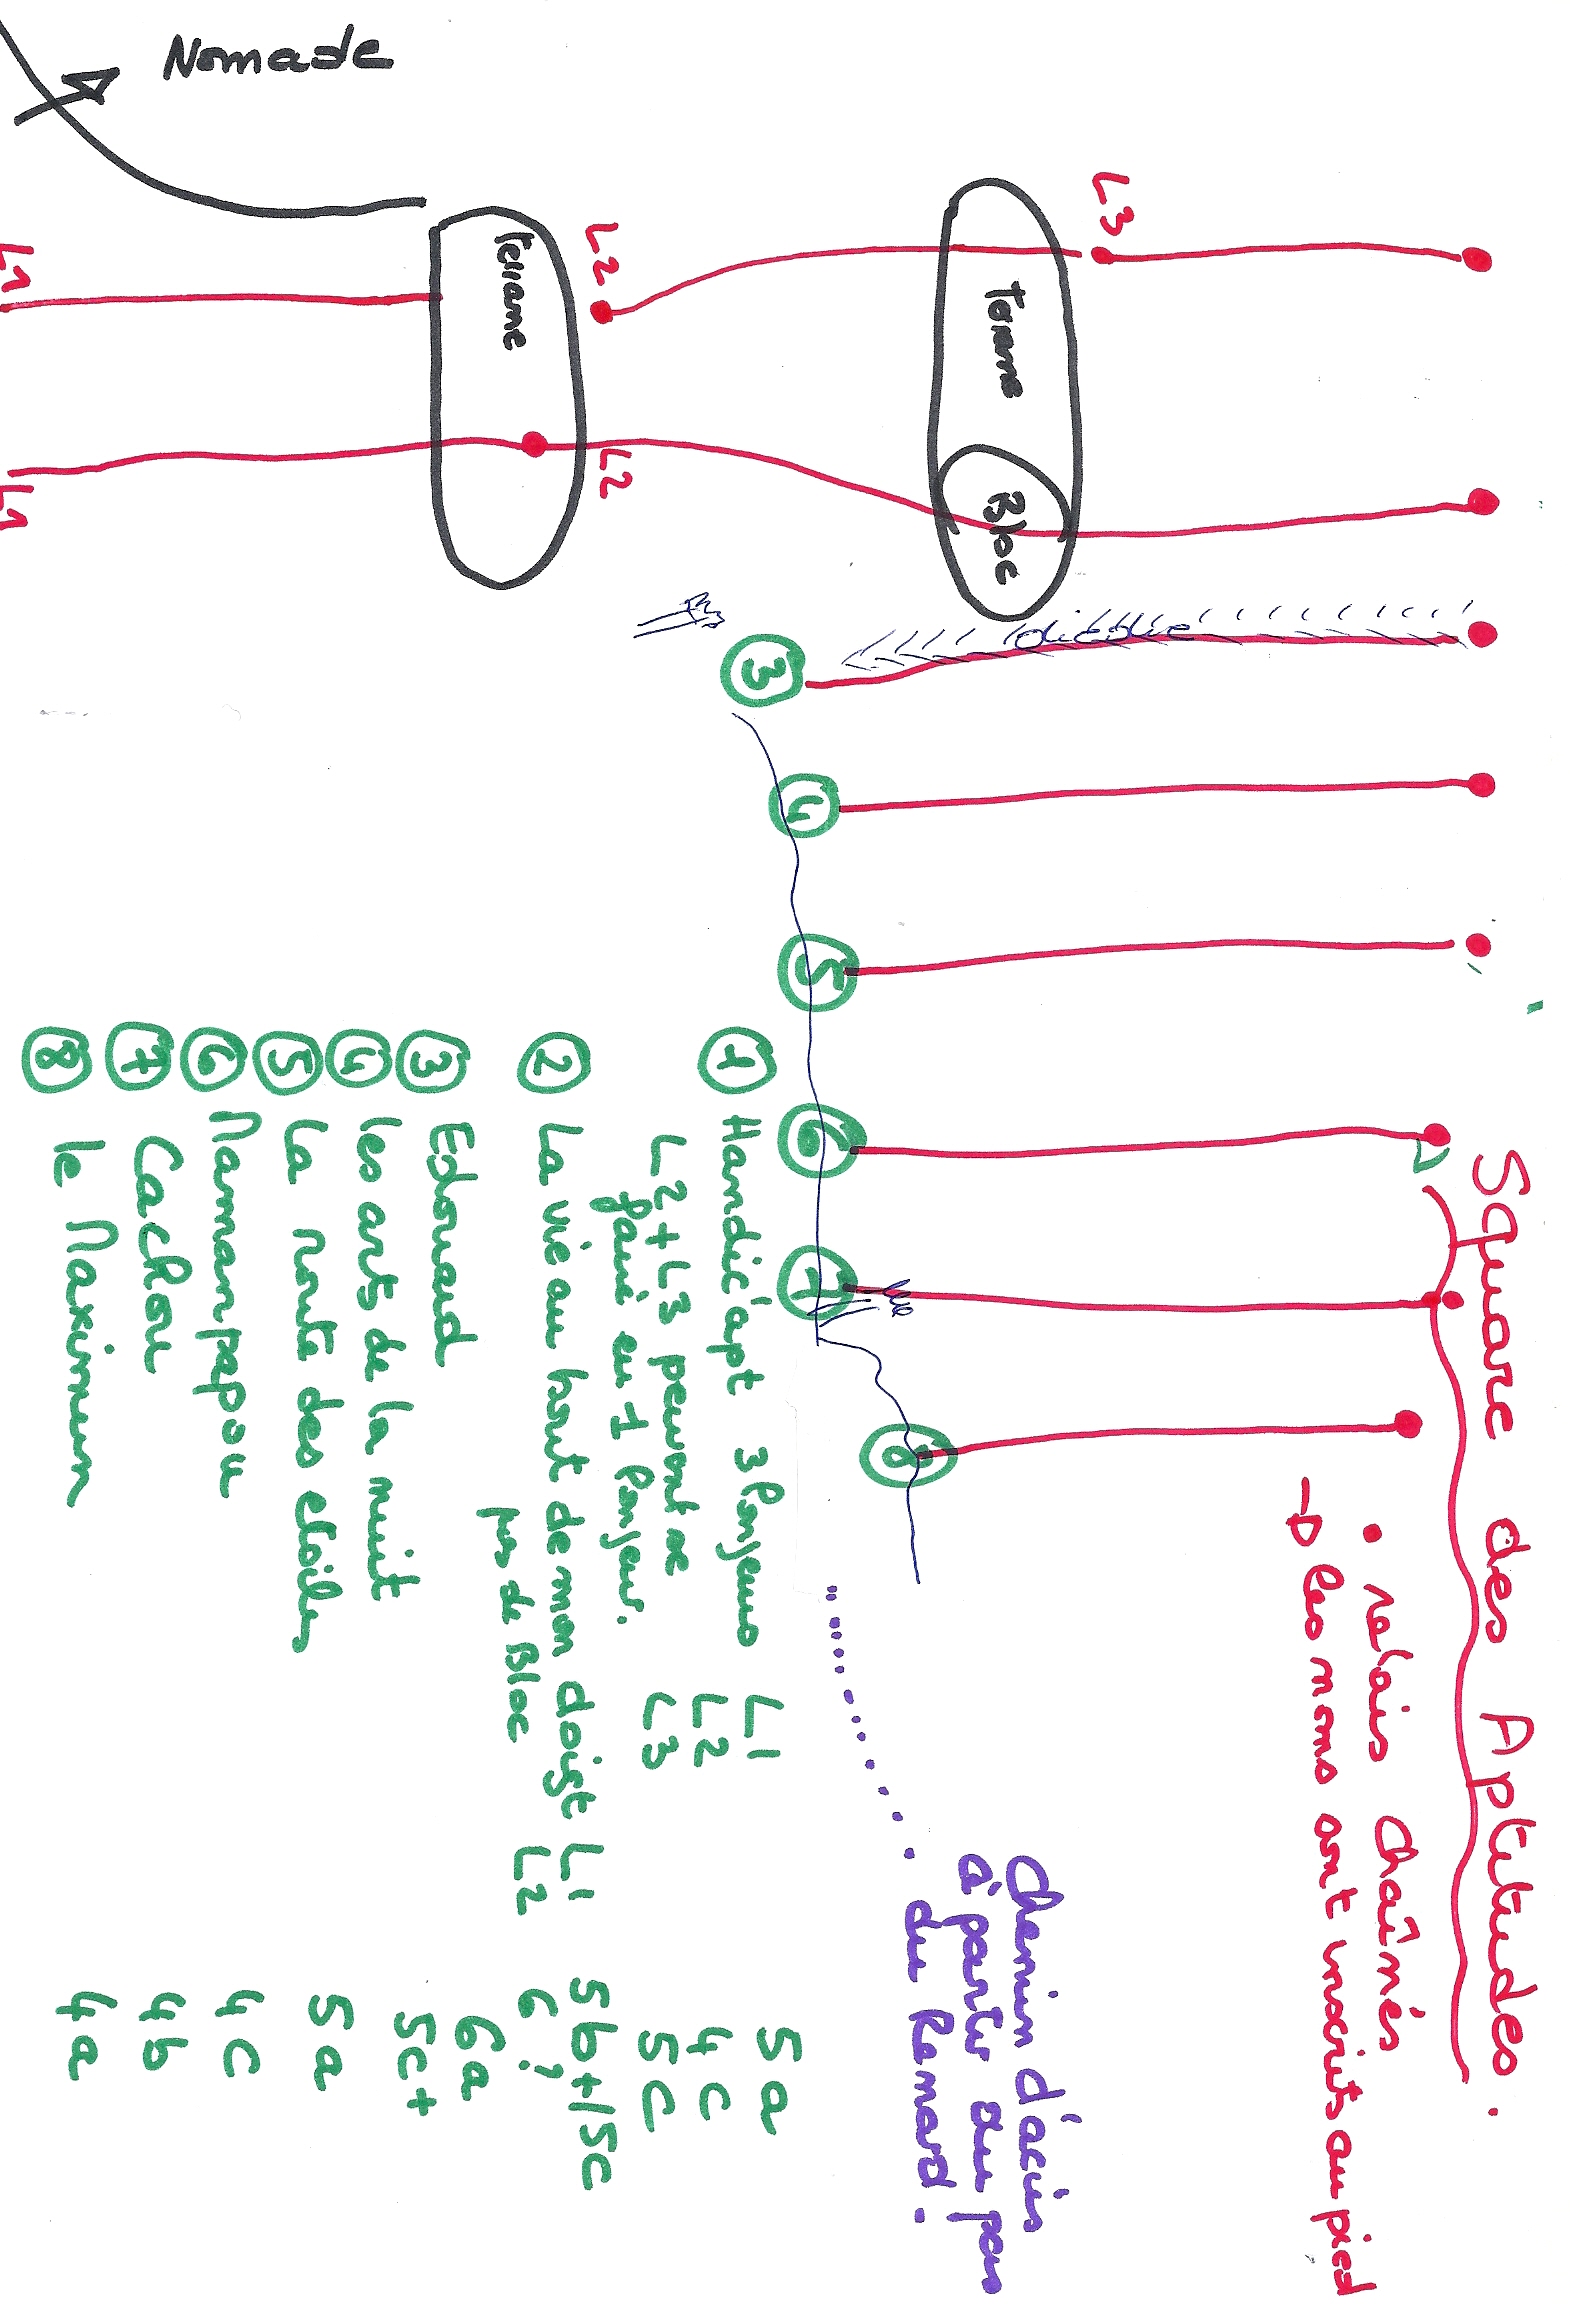 Square des Aptitudes.
• relais chaînés
→ les noms sont inscrits au pied
Chemin d'accès
à partir du pas
du Renard.
L3
Terrasse Bloc
L2
L2
Terrasse
Nomade
L1
L1
dièdre
3
4
5
6
7
8
1 Handic'apt 3 longueurs L1 5a
L2 4c
L2+L3 peuvent se L3 5c
faire en 1 longueur.
2 La vie au bout de mon doigt L1 5b+/5c
pas de Bloc L2 6?
3 Edouard 6a
4 les arts de la nuit 5c+
5 La route des etoiles 5a
6 Maman papou 4c
7 Cachou 4b
8 le Maximum 4a